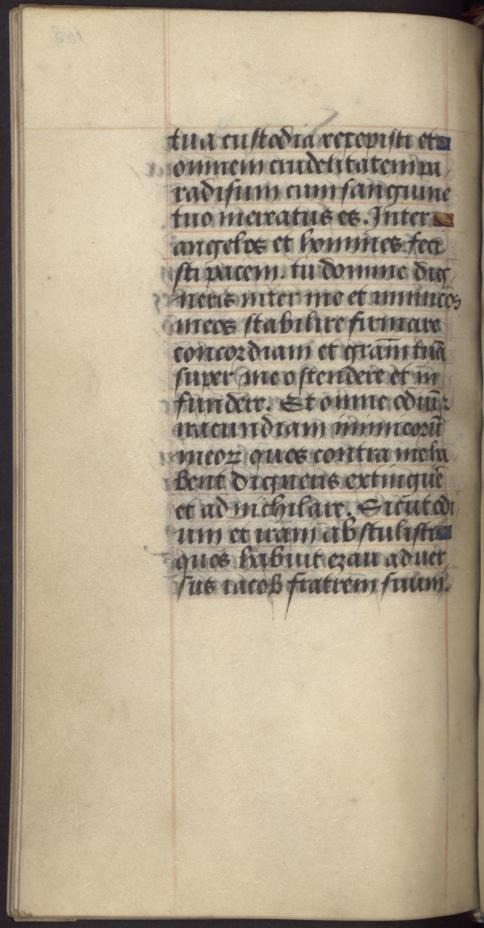 tua custodia recepisti et
omnem crudelitatem pa
radisum cum sanguine
tuo mercatus es. Inter
angelos et homines feci
sti pacem. tu domine dig
neris inter me et inimicos
meos stabilire firmare
concordiam et gram̄ tuā
super me ostendere et in
fundere. Et omne odiū ⁊
iracundiam inimicorū
meoꝝ quos contra me ha
bent digneris extinguē
et ad nichilare. Sicut odi
um et iram abstulisti
quos habuit ezau aduer
sus iacob fratrem suum.